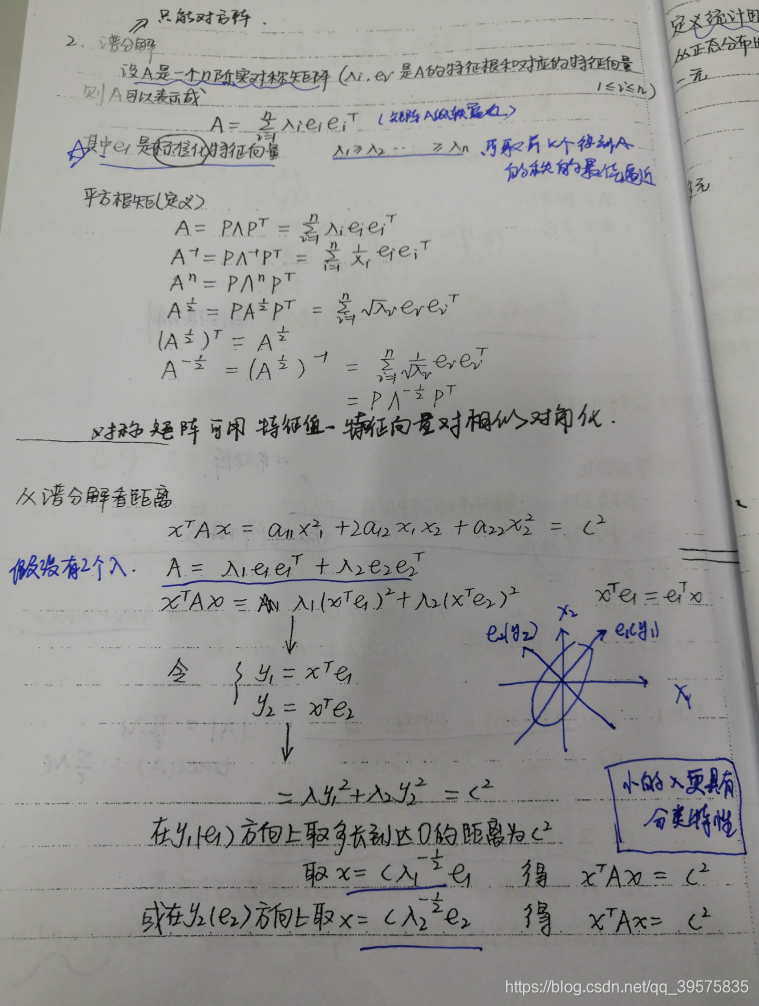 只能对方阵.
2. 谱分解
设A是一个n阶实对称矩阵 (λi, ei 是A的特征根和对应的特征向量
1≤i≤n)
则A可以表示成
A = Σ_{i=1}^{n} λi ei ei^T (矩阵A的
其中ei是标准化特征向量 λ1≥λ2 ⋯ ≥λn 可取前k个得到A
的秩的最佳逼近
平方根矩(定义)
A = PΛP^T = Σ_{i=1}^{n} λi ei ei^T
A^{-1} = PΛ^{-1}P^T = Σ_{i=1}^{n} 1/λi ei ei^T
A^n = PΛ^nP^T
A^{1/2} = PΛ^{1/2}P^T = Σ_{i=1}^{n} √λi ei ei^T
(A^{1/2})^T = A^{1/2}
A^{-1/2} = (A^{1/2})^{-1} = Σ_{i=1}^{n} 1/√λi ei ei^T
= PΛ^{-1/2}P^T
对称矩阵可用特征值-特征向量对相似对角化.
从谱分解看距离
x^TAx = a11x1^2 + 2a12x1x2 + a22x2^2 = c^2
假设没有2个λ. A = λ1e1e1^T + λ2e2e2^T
x^TAx = λ1(x^Te1)^2 + λ2(x^Te2)^2 x^Te1 = e1^Tx
x2
e2(y2) e1(y1)
x1
令 { y1 = x^Te1
y2 = x^Te2
= λy1^2 + λ2y2^2 = c^2
小的λ更具有
分类特性
在y1(e1)方向上取多长到达O的距离为c^2
取 x = cλ1^{-1/2}e1 得 x^TAx = c^2
或在y2(e2)方向上取 x = cλ2^{-1/2}e2 得 x^TAx = c^2
定义统计距
从正态分布
一元
元
https://blog.csdn.net/qq_39575835